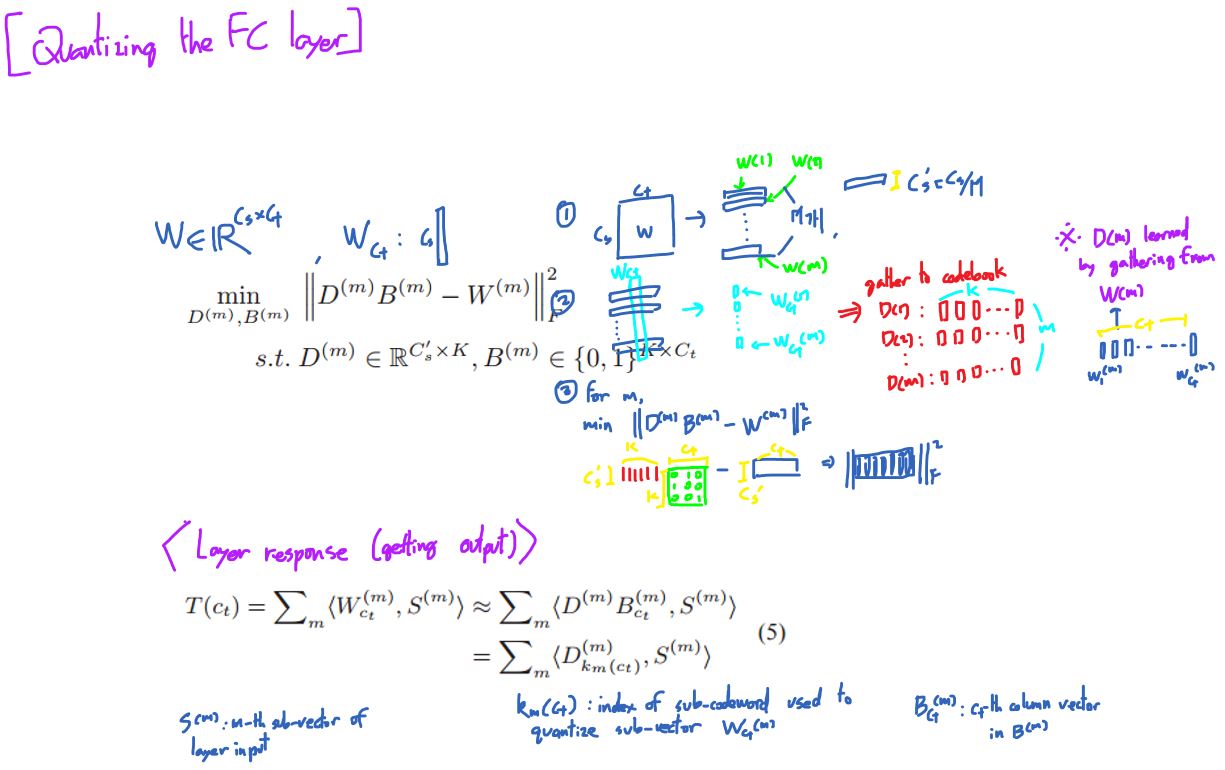 [Quantizing the FC layer]
W ∈ ℝ^{Cs×Ct} , W_{Ct} : Cs
min_{D^{(m)},B^{(m)}} ‖D^{(m)}B^{(m)} − W^{(m)}‖²_F
s.t. D^{(m)} ∈ ℝ^{C′_s×K}, B^{(m)} ∈ {0,1}^{K×C_t}
① Ct Cs W → W(1) W(2) W(m) M개, Cs' = Cs/M
② W_{Ct} → W_{Ct}^{(1)} W_{Ct}^{(m)} ⇒
gather to codebook
K
D(1) :
D(2) :
⋮
D(m) :
m
※ D(m) learned
by gathering from
W(m)
Ct
W_1^{(m)} W_{Ct}^{(m)}
③ For m,
min ‖D^{(m)} B^{(m)} − W^{(m)}‖²_F
K Ct Ct
Cs' K 0 1 0 − Cs' ⇒ ‖ ‖²_F
1 0 0
0 0 1
<Layer response (getting output)>
T(c_t) = ∑_m ⟨W_{c_t}^{(m)}, S^{(m)}⟩ ≈ ∑_m ⟨D^{(m)}B_{c_t}^{(m)}, S^{(m)}⟩
= ∑_m ⟨D_{k_m(c_t)}^{(m)}, S^{(m)}⟩ (5)
S^{(m)} : m-th sub-vector of
layer input
k_m(Ct) : index of sub-codeword used to
quantize sub-vector W_{Ct}^{(m)}
B_{Ct}^{(m)} : Ct-th column vector
in B^{(m)}